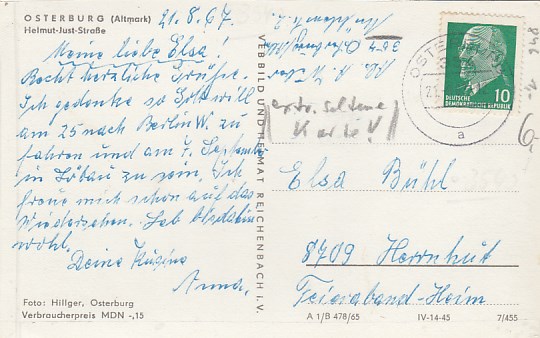 OSTERBURG (Altmark)
Helmut-Just-Straße
21.8.67.
Meine liebe Elsa!
Recht herzliche Grüße.
Ich gedenke so Gott will
am 25 nach Berlin W. zu
fahren und am 7. September
in Löbau zu sein. Ich
freue mich schon auf das
Wiedersehen. Leb bis dahin
wohl.
Deine Kusine
Anna.
Foto: Hillger, Osterburg
Verbraucherpreis MDN -,15
VEB BILD UND HEIMAT REICHENBACH I.V.
354 Osterburg
extr. seltene
Karte!
OSTERBURG
21
a
DEUTSCHE
DEMOKRATISCHE REPUBLIK
10
6,-
Elsa Bühl
8709 Herrnhut
Feierabend-Heim
A 1/B 478/65 IV-14-45 7/455